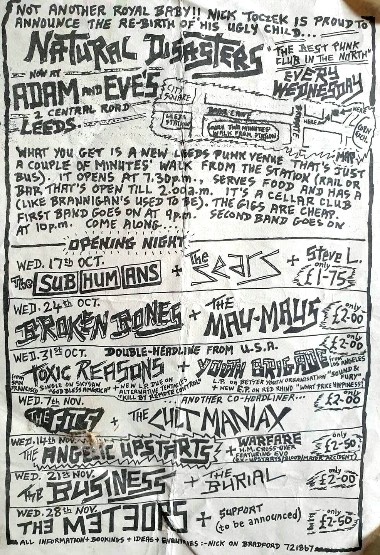 NOT ANOTHER ROYAL BABY!! NICK TOCZEK IS PROUD TO
ANNOUNCE THE RE-BIRTH OF HIS UGLY CHILD...
NATURAL DISASTERS
"THE BEST PUNK
CLUB IN THE NORTH"
NOW AT
ADAM AND EVE'S
2 CENTRAL ROAD
LEEDS.
EVERY
WEDNESDAY
CITY
SQUARE
LEEDS
STATION
BOAR LANE
HERE
CORN
EX.
MAP
WHAT YOU GET IS A NEW LEEDS PUNK VENUE THAT'S JUST
A COUPLE OF MINUTES' WALK FROM THE STATION (RAIL OR
BUS). IT OPENS AT 7.30p.m. SERVES FOOD AND HAS A
BAR THAT'S OPEN TILL 2.00a.m. IT'S A CELLAR CLUB
(LIKE BRANNIGAN'S USED TO BE). THE GIGS ARE CHEAP.
FIRST BAND GOES ON AT 9p.m. SECOND BAND GOES ON
AT 10p.m. COME ALONG...
OPENING NIGHT
WED. 17th OCT.
THE SUBHUMANS + THE SEARS + STEVE L.
only £1-75
WED. 24th OCT.
BROKEN BONES + THE MAU-MAUS
only £2-00
WED. 31st OCT. DOUBLE-HEADLINE FROM U.S.A.
only £2-00
from SAN FRANCISCO
TOXIC REASONS + YOUTH BRIGADE
from LOS ANGELES
+ NEW L.P. DUE ON
ALTERNATIVE TENTACLES
"KILL BY REMOTE CONTROL"
L.P. ON BETTER YOUTH ORGANISATION "SOUND & FURY"
+ NEW E.P. ON RED RHINO "WHAT PRICE HAPPINESS"
WED. 7th NOV. ANOTHER CO-HEADLINER...
THE FITS + THE CULT MANIAX
only £2-00
WED. 14th NOV.
THE ANGELIC UPSTARTS + WARFARE
H.M. CROSS OVER
FEATURING EVO
(EX-UPSTARTS/BLOOD/MAJOR ACCIDENT)
only £2-50
WED. 21st NOV.
THE BUSINESS + THE BURIAL
only £2-00
WED. 28th NOV.
THE METEORS + SUPPORT
(to be announced)
only £2-50
ALL INFORMATION + BOOKINGS + IDEAS + ENQUIRIES :- NICK ON BRADFORD 721867